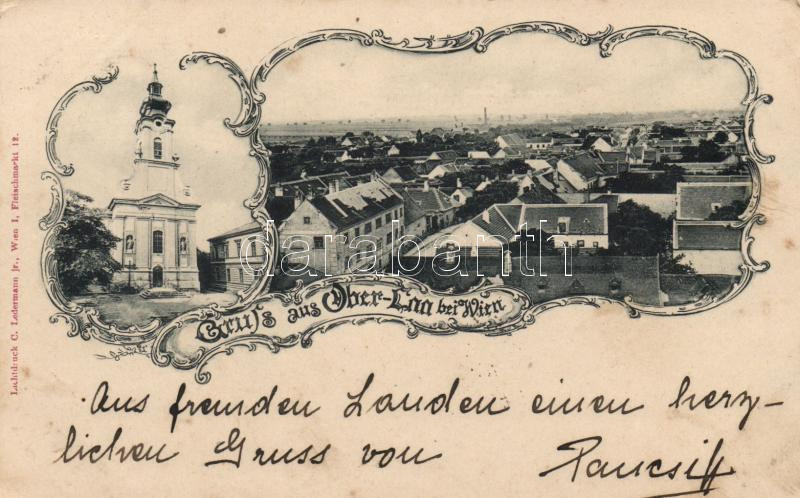 Lichtdruck C. Ledermann jr., Wien I, Fleischmarkt 12.
Gruss aus Ober-Laa bei Wien
darabanth
Aus fremden Landen einen herz-
lichen Gruss von